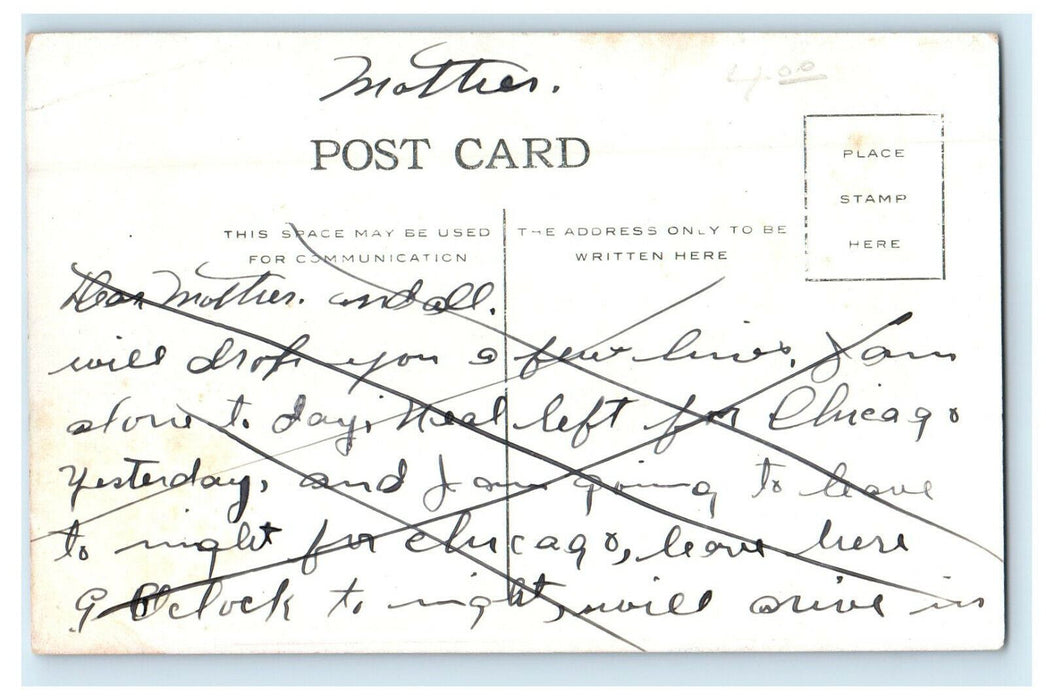 Mother.
4.00
POST CARD
PLACE
STAMP
HERE
THIS SPACE MAY BE USED
FOR COMMUNICATION
THE ADDRESS ONLY TO BE
WRITTEN HERE
Dear Mother. and all.
will drop you a few lines. I am
alone to day, Neal left for Chicago
Yesterday, and I am going to leave
to night for chicago, leave here
9 Oclock to night, will arive in